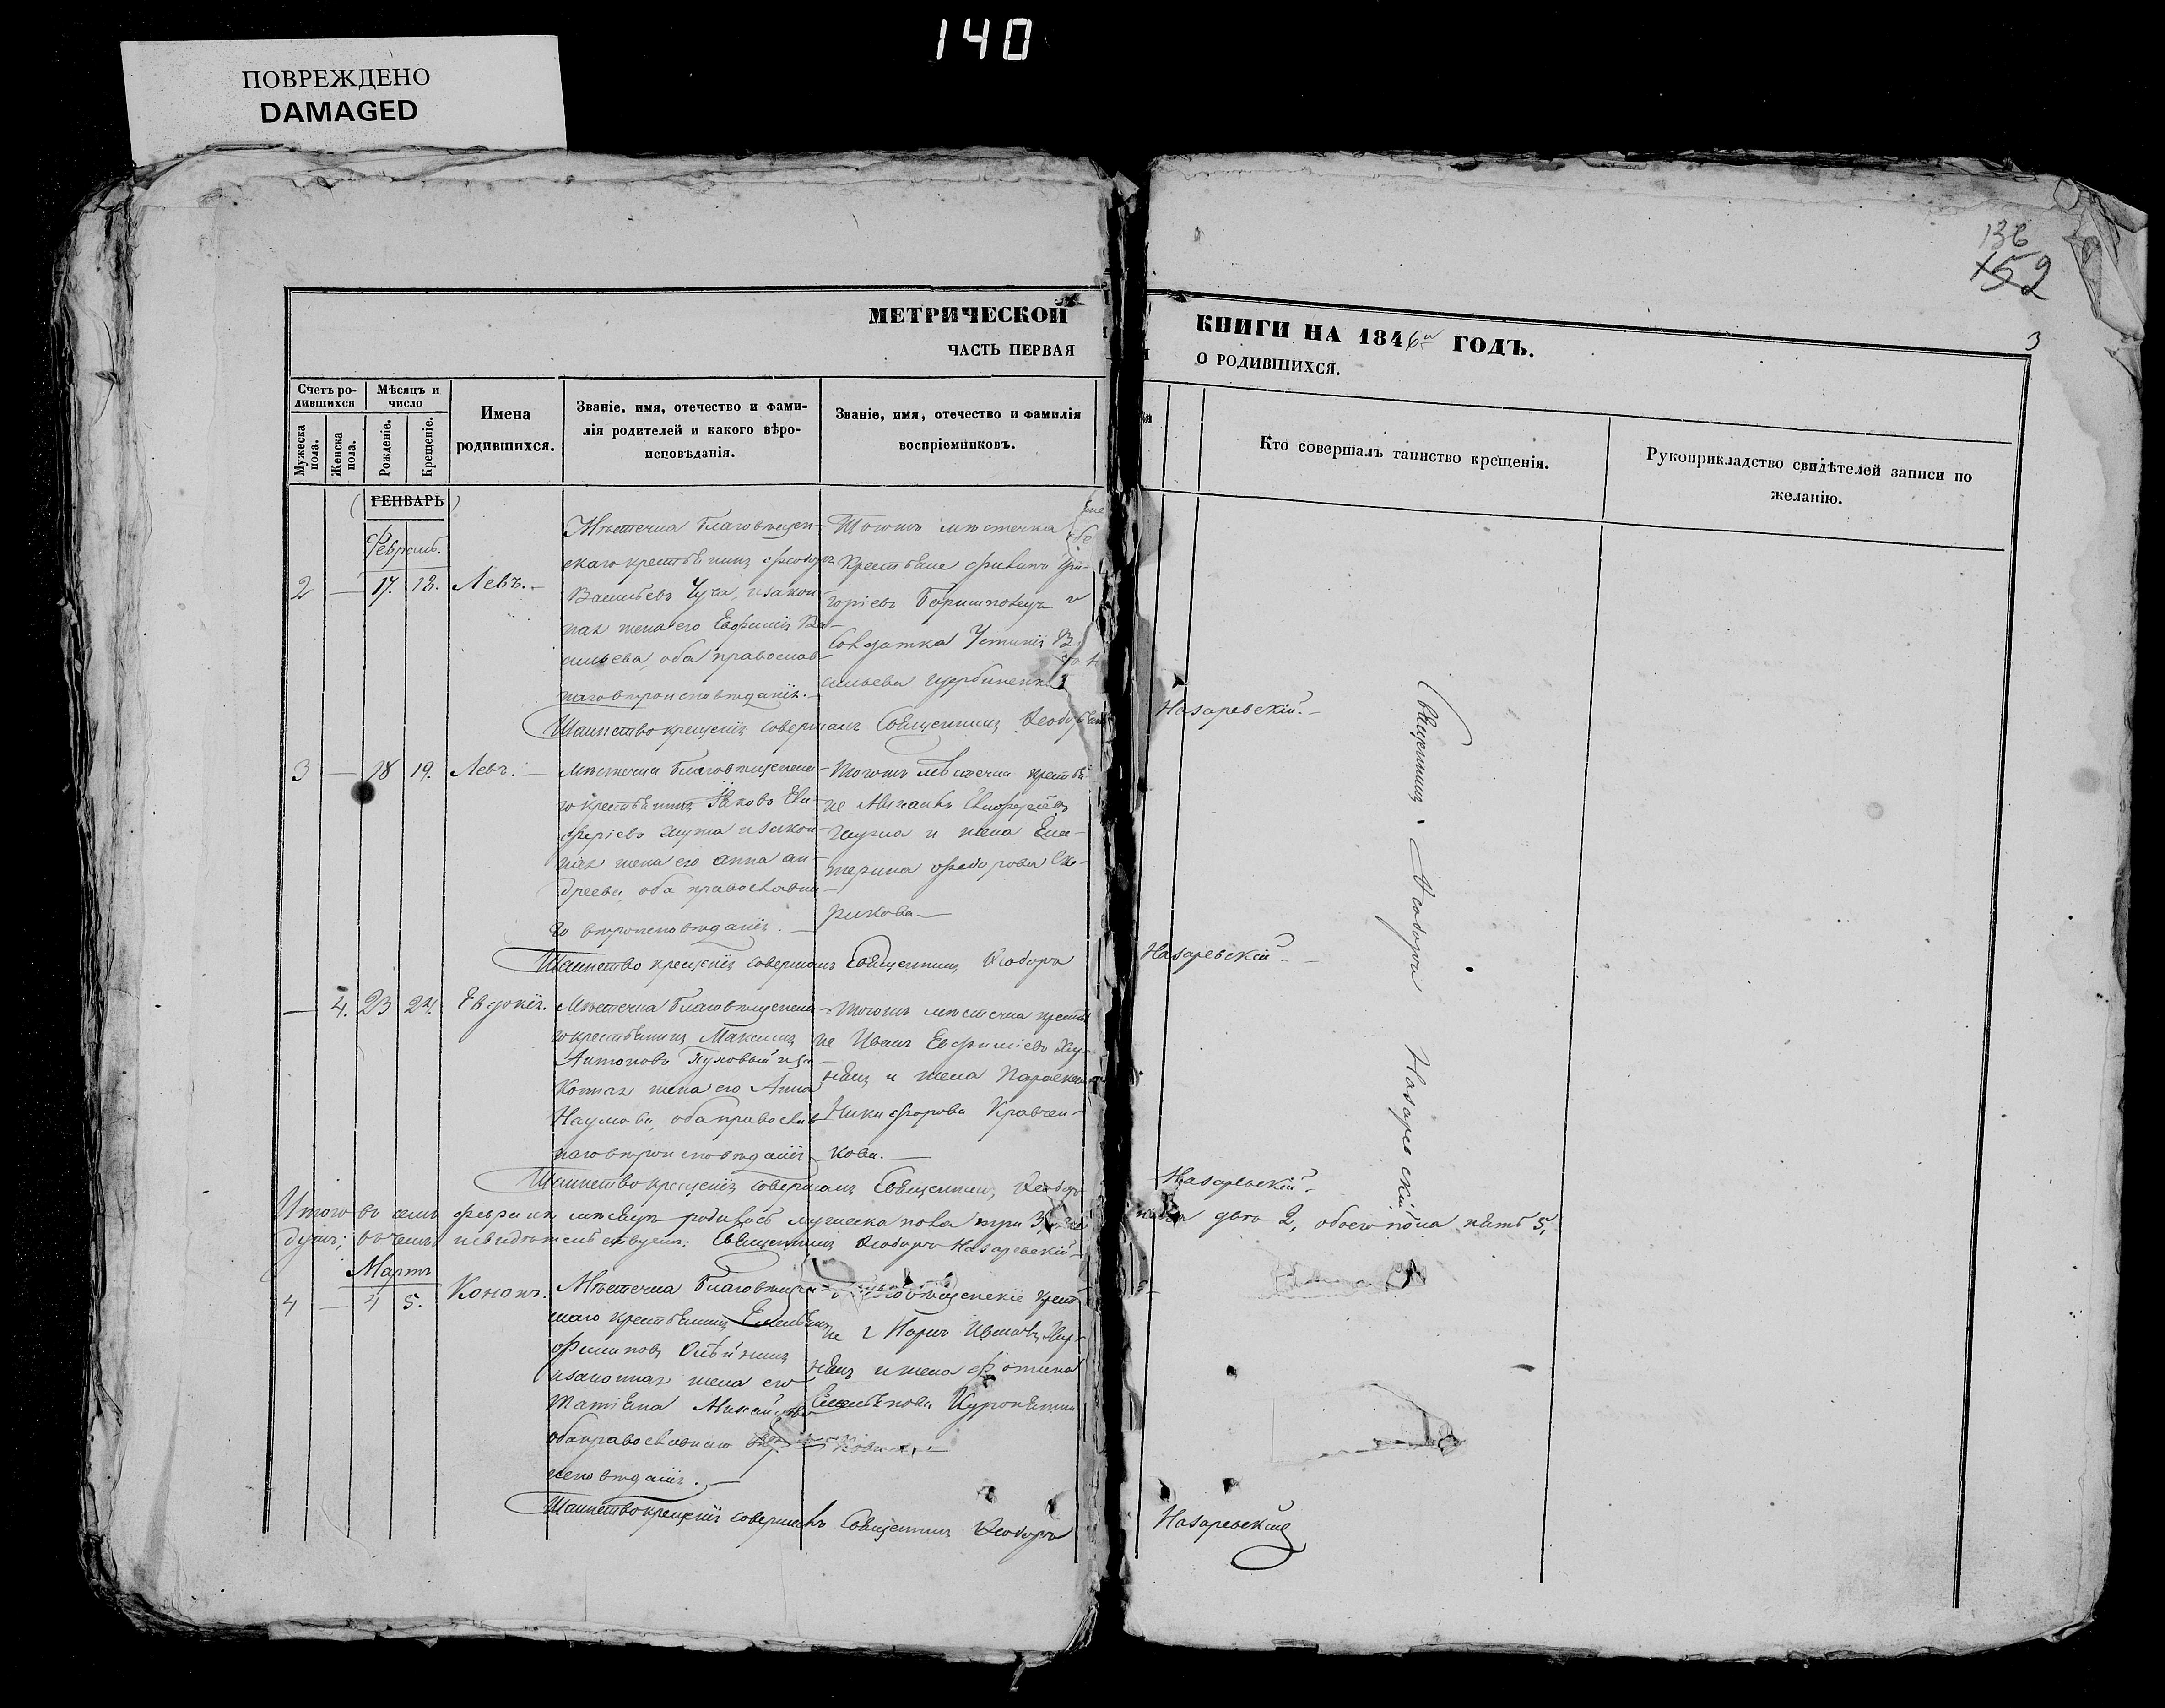 140
ПОВРЕЖДЕНО
DAMAGED
136
152
3
МЕТРИЧЕСКОЙ КНИГИ НА 1846й ГОДЪ.
ЧАСТЬ ПЕРВАЯ О РОДИВШИХСЯ.
Счетъ ро-
дившихся
Мужеска пола.
Женска пола.
Мѣсяцъ и
число
Рожденіе.
Крещеніе.
Имена
родившихся.
Званіе, имя, отечество и фами-
лія родителей и какого вѣро-
исповѣданія.
Званіе, имя, отечество и фамилія
воспріемниковъ.
Кто совершалъ таинство крещенія.
Рукоприкладство свидѣтелей записи по
желанію.
ГЕНВАРЬ
Февраль.
2 — 17. 18. Левъ.—
Мѣстечка Благовѣщен-
скаго крестьянинъ Феодоръ
Васильевъ Чуча, и закон-
ная жена его Евфимія Ва-
сильева, оба православ-
наго вѣроисповѣданія.—
Тогожъ мѣстечка
Крестьяне Филипъ Гри-
горіевъ и
Солдатка Устинія Ва-
сильева
Таинство крещенія совершалъ Священникъ Феодоръ Назаревскій.—
3 — 18 19. Левъ.—
Мѣстечка Благовѣщенска-
го крестьянинъ Яковъ Ели-
феріевъ и закон-
ная жена его Анна Ан-
дреева, оба православна-
го вѣроисповѣданія.—
Тогожъ мѣстечка крестья-
не
и жена Ека-
терина Федорова Ска-
рикова—
Таинство крещенія совершалъ Священникъ Феодоръ Назаревскій.—
— 4. 23 24. Евдокія.
Мѣстечка Благовѣщенска-
го крестьянинъ Максимъ
Антоновъ Пуховый и за-
конная жена его Анна
Наумова, оба православ-
наго вѣроисповѣданія
Тогожъ мѣстечка крестья-
не Иванъ Евфиміевъ
и жена Параскева
Никифорова Кравчен-
кова.—
Таинство крещенія совершалъ Священникъ Феодоръ Назаревскій.—
Итого въ семъ февралѣ мѣсяцѣ родилось мужеска пола три 3, женска два 2, обоего пола пять 5,
душъ; въ чемъ и свидѣтельствуемъ: Священникъ Феодоръ Назаревскій—
Священникъ Феодоръ Назаревскій
Мартъ
4 — 4 5. Кононъ.
Мѣстечка Благовѣщен-
скаго крестьянинъ Емельянъ
Филиповъ Олѣйникъ
и законная жена его
Татіяна
оба православнаго
исповѣданія.—
крестья-
не Карпъ Ивановъ
и жена Фотина
Емельянова
Таинство крещенія совершалъ Священникъ Феодоръ Назаревскій